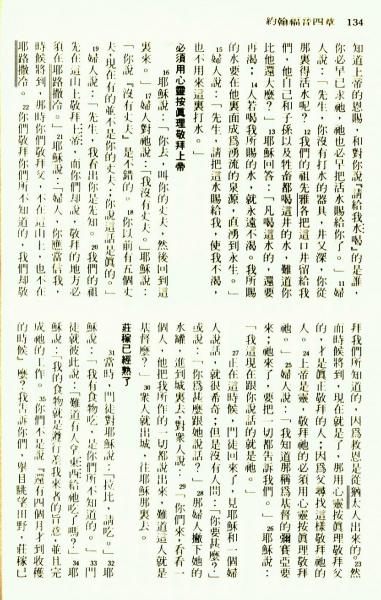 134　約翰福音四章
知道上帝的恩賜，和對你說『請給我水喝』的是誰，
你必早已求祂，祂也必早把活水賜給你了。」 11 婦
人說：「先生，你沒有打水的器具，井又深，你從
那裏得活水呢？ 12 我們的祖先雅各把這口井留給我
們，他自己和子孫以及牲畜都喝這井的水，難道你
比他還大麼？」 13 耶穌回答：「凡喝這水的，還要
再渴； 14 人若喝我所賜的水，就永遠不渴。我所賜
的水要在他裏面成為湧流的泉源，直湧到永生。」
15 婦人說：「先生，請把這水賜給我，使我不渴，
也不用來這裏打水。」
必須用心靈按眞理敬拜上帝
16 耶穌說：「你去，叫你的丈夫，然後回到這
裏來。」 17 婦人對祂說：「我沒有丈夫。」耶穌說：
「你說『沒有丈夫』是不錯的。 18 你以前有五個丈
夫，現在有的並不是你的丈夫，你說這話是眞的。」
19 婦人說：「先生，我看出你是先知。 20 我們的祖
先在這山上敬拜上帝，而你們卻說，敬拜的地方必
須在耶路撒冷。」 21 耶穌說：「婦人，你應當信我，
時候將到，那時你們敬拜父，不在這山上，也不在
耶路撒冷。 22 你們敬拜你們所不知道的，我們卻敬
拜我們所知道的，因為救恩是從猶太人出來的。 23 然
而時候將到，現在就是了，那用心靈按眞理敬拜父
的，才是眞正敬拜的人；因為父尋找這樣敬拜祂的
人。 24 上帝是靈，敬拜祂的必須用心靈按眞理敬拜
祂。」 25 婦人說：「我知道那稱為基督的彌賽亞要
來；祂來了，要把一切都告訴我們。」 26 耶穌說：
「我這現在跟你說話的就是祂。」
27 正在這時候，門徒回來了，見耶穌和一個婦
人說話，就很希奇；但是沒有人問：「你要甚麼？」
或說：「你為甚麼跟她說話？」 28 那婦人撇下她的
水罐，進到城裏去，對衆人說： 29 「你們來看看一
個人，他把我所作的一切都說出來，難道這人就是
基督麼？」 30 衆人就出城，往耶穌那裏去。
莊稼已經熟了
31 當時，門徒對耶穌說：「拉比，請吃。」 32 耶
穌說：「我有食物吃，是你們所不知道的。」 33 門
徒就彼此說：「難道有人拿東西給祂吃了嗎？」 34 耶
穌說：「我的食物就是遵行差我來者的旨意，並且完
成祂的工作。 35 你們不是說『還有四個月才到收穫
的時候』麼？我告訴你們，舉目眺望田野，莊稼已